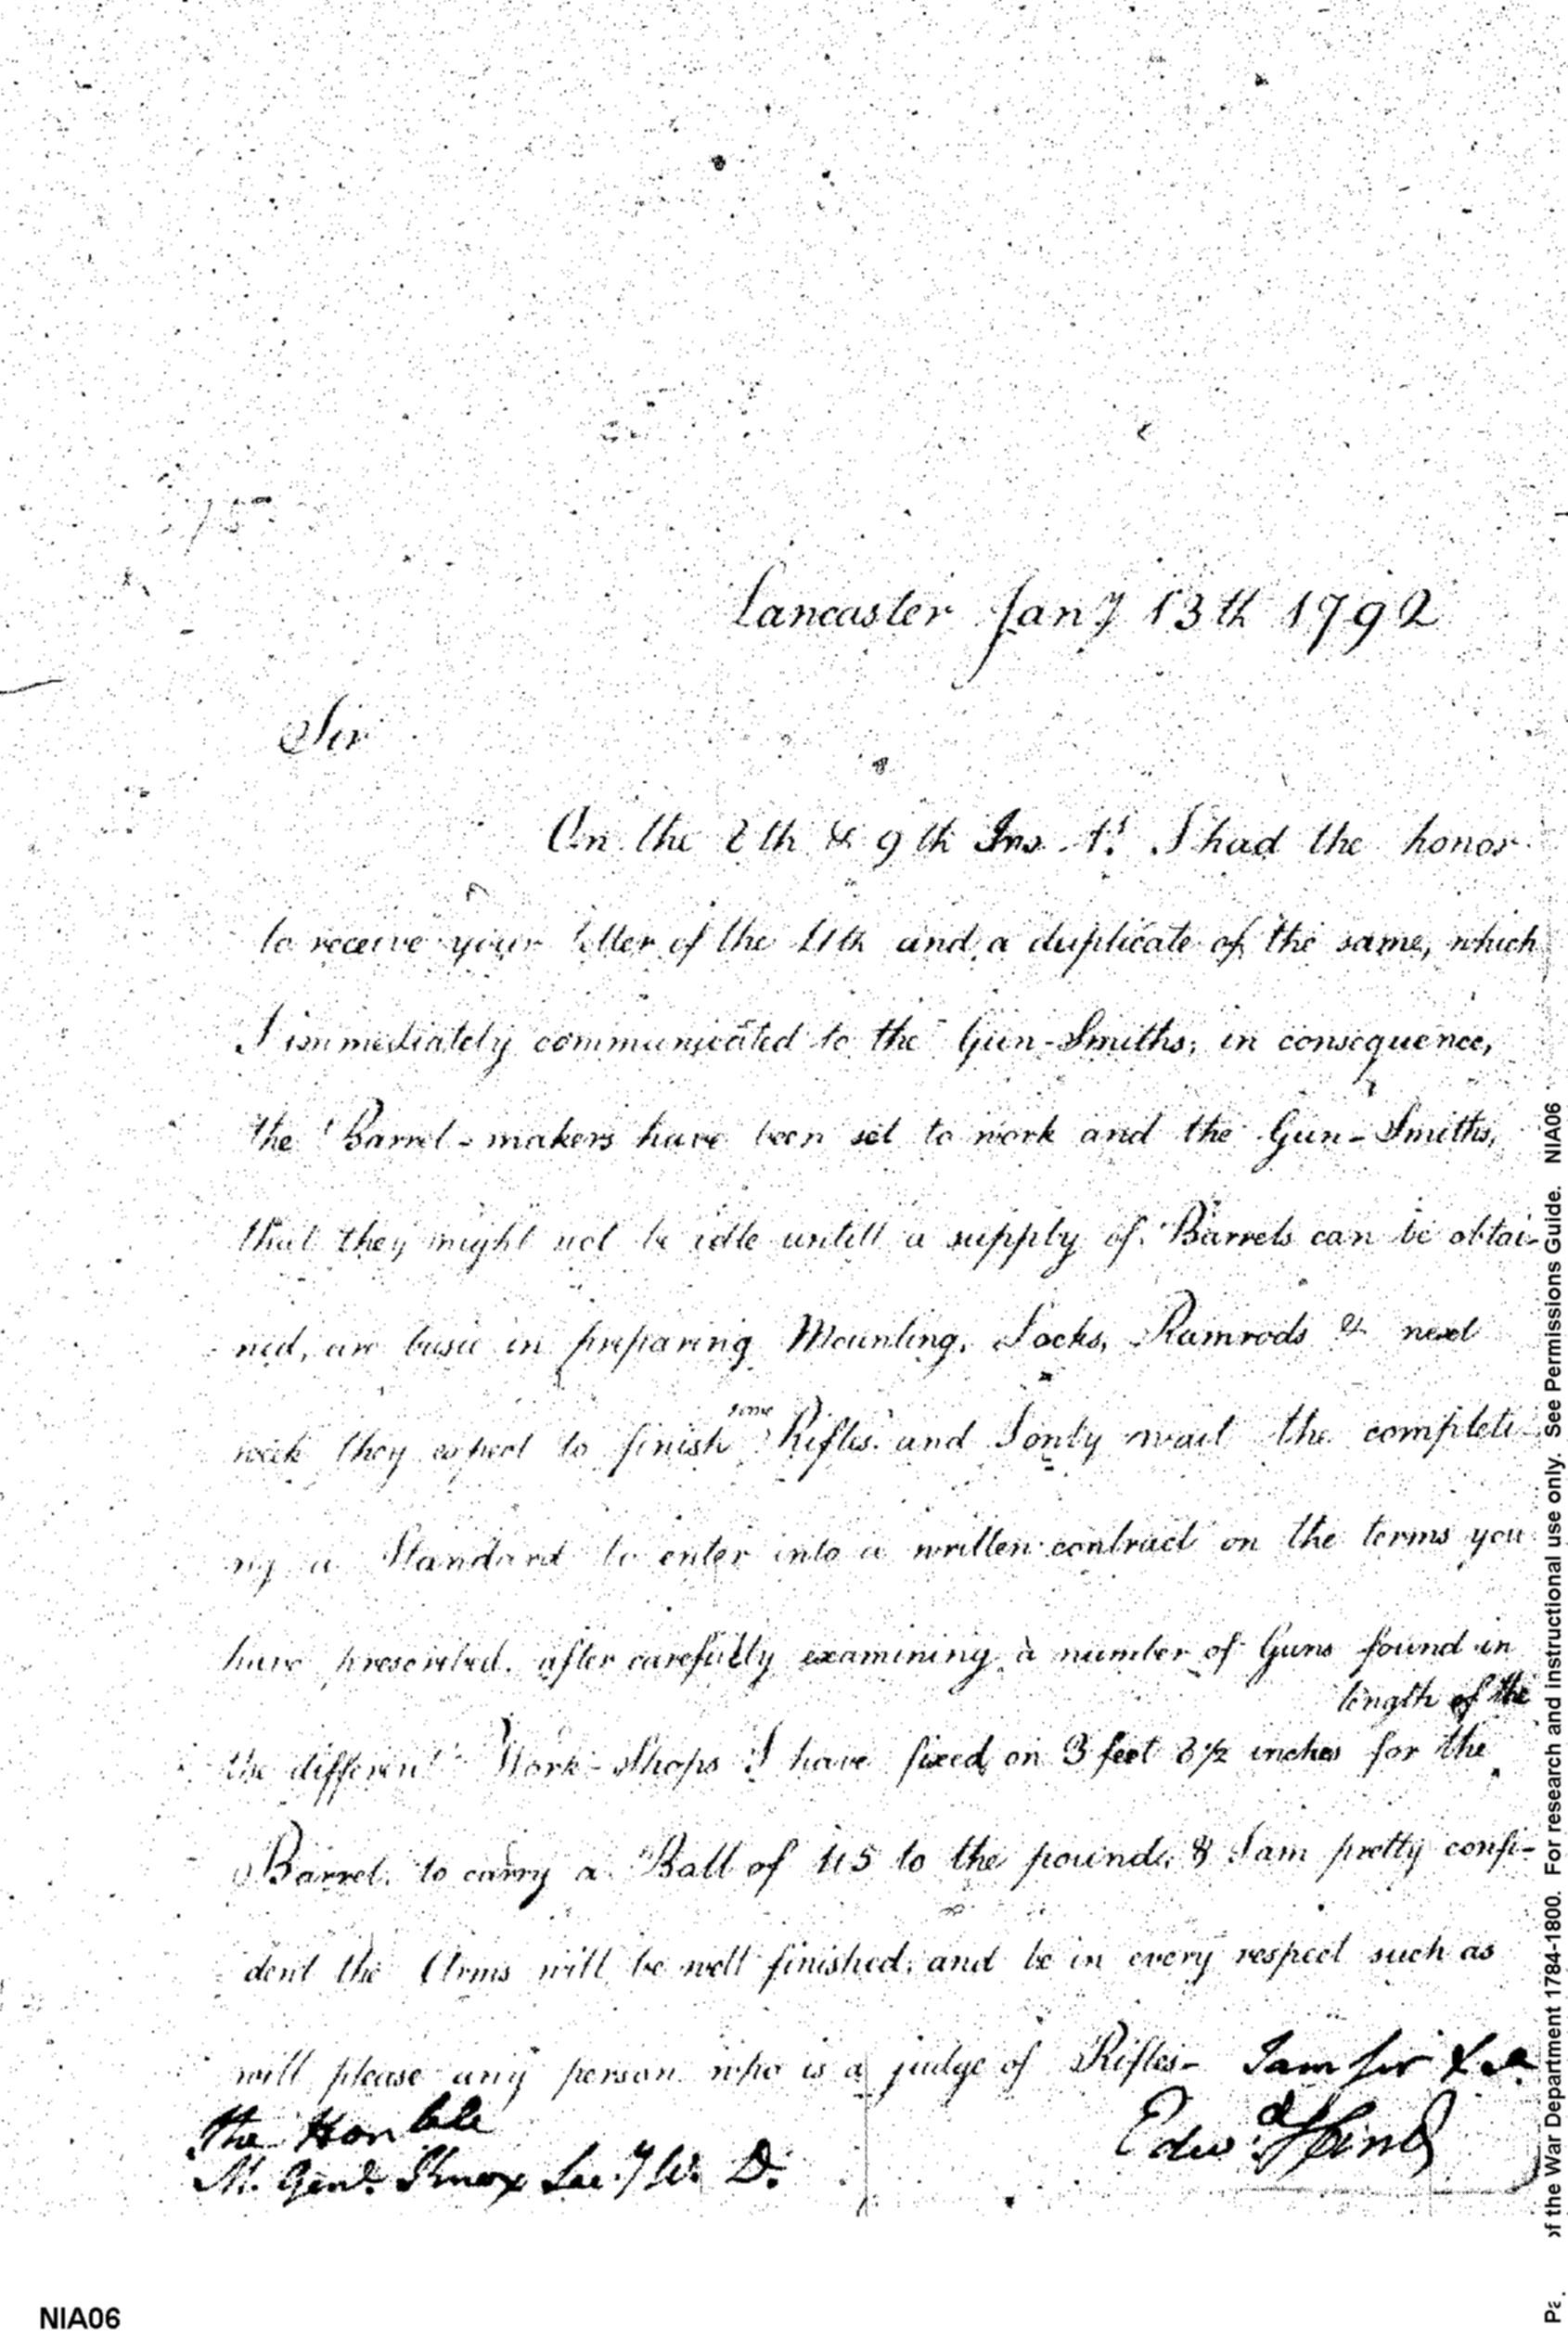 Lancaster Jany 13th 1792
Sir
On the 8th & 9th Ins t. I had the honor
to receive your letter of the 4th and a duplicate of the same, which
I immediately communicated to the Gun-Smiths; in consequence,
the Barrel-makers have been set to work and the Gun-Smiths,
that they might not be idle untill a supply of Barrels can be obtai-
ned, are busie in preparing Mounting, Locks, Ramrods & next
some
week they expect to finish Rifles and I only wait the completi-
ng a Standard to enter into a written contract on the terms you
have prescribed. after carefully examining a number of Guns found in
length of the
the different Work-Shops I have fixed on 3 feet 8½ inches for the
Barrel. to carry a Ball of 45 to the pound, & I am pretty confi-
dent the Arms will be well finished, and be in every respect such as
will please any person who is a judge of Rifles- I am Sir &c
The Honble
Edwd Hand
M. Genl. Knox Secy W. D.
NIA06
of the War Department 1784-1800. For research and instructional use only. See Permissions Guide. NIA06